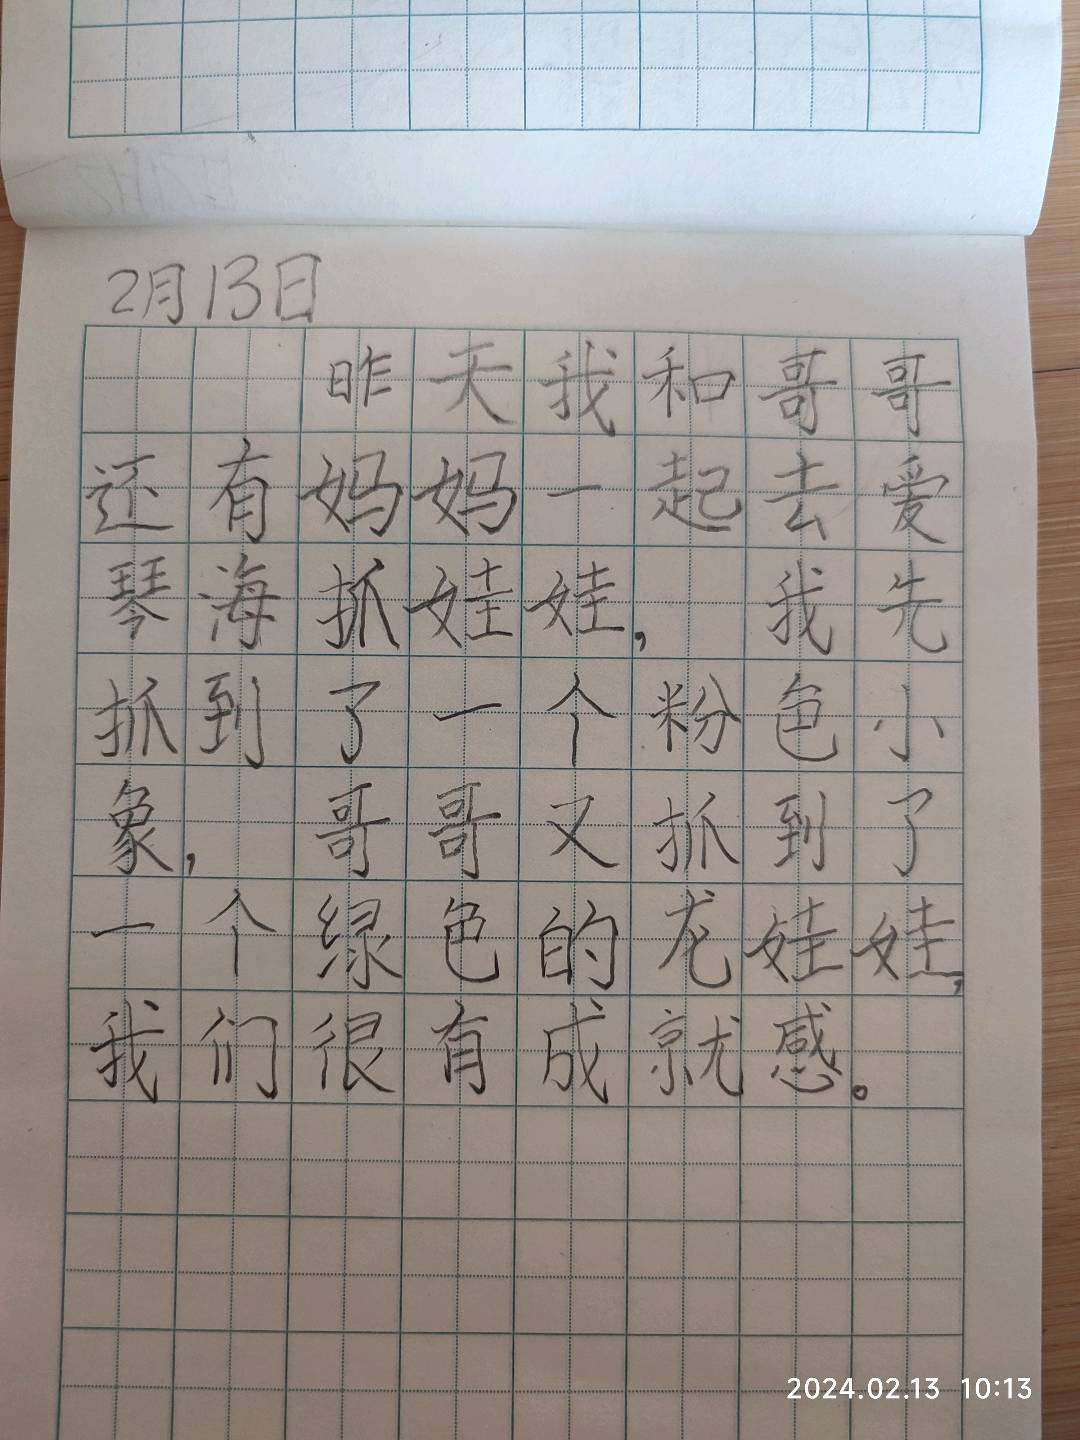 2月13日
昨天我和哥哥
还有妈妈一起去爱
琴海抓娃娃，我先
抓到了一个粉色小
象，哥哥又抓到了
一个绿色的龙娃娃，
我们很有成就感。
2024.02.13 10:13